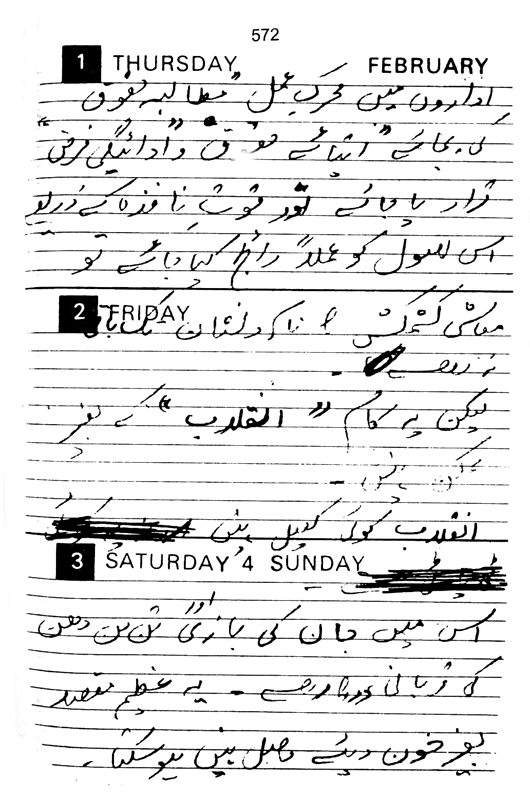 572
1 THURSDAY FEBRUARY
اداروں میں محرکِ عمل "مطالبہ حقوق
کی بجائے "ایتائے حقوق و ادائیگی فرض"
قرار پا جائے اور قوت نافذہ کے ذریعے
اس اصول کو عملاً رائج کیا جائے تو
2 FRIDAY
معاشی کشمکش کا نام و نشان تک باقی
نہ رہے۔
لیکن یہ کام "انقلاب" کے بغیر
ممکن نہیں۔
انقلاب کوئی کھیل نہیں
3 SATURDAY 4 SUNDAY
اس میں جان کی بازی اور تن من دھن
کی قربانی درکار ہے۔ یہ عظیم مقصد
بغیر خون دیئے حاصل نہیں ہو سکتا۔